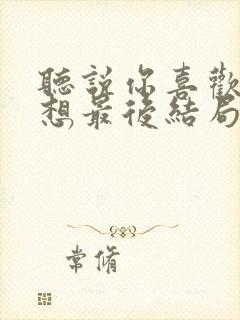 聽說你喜歡
想最後結局
常脩